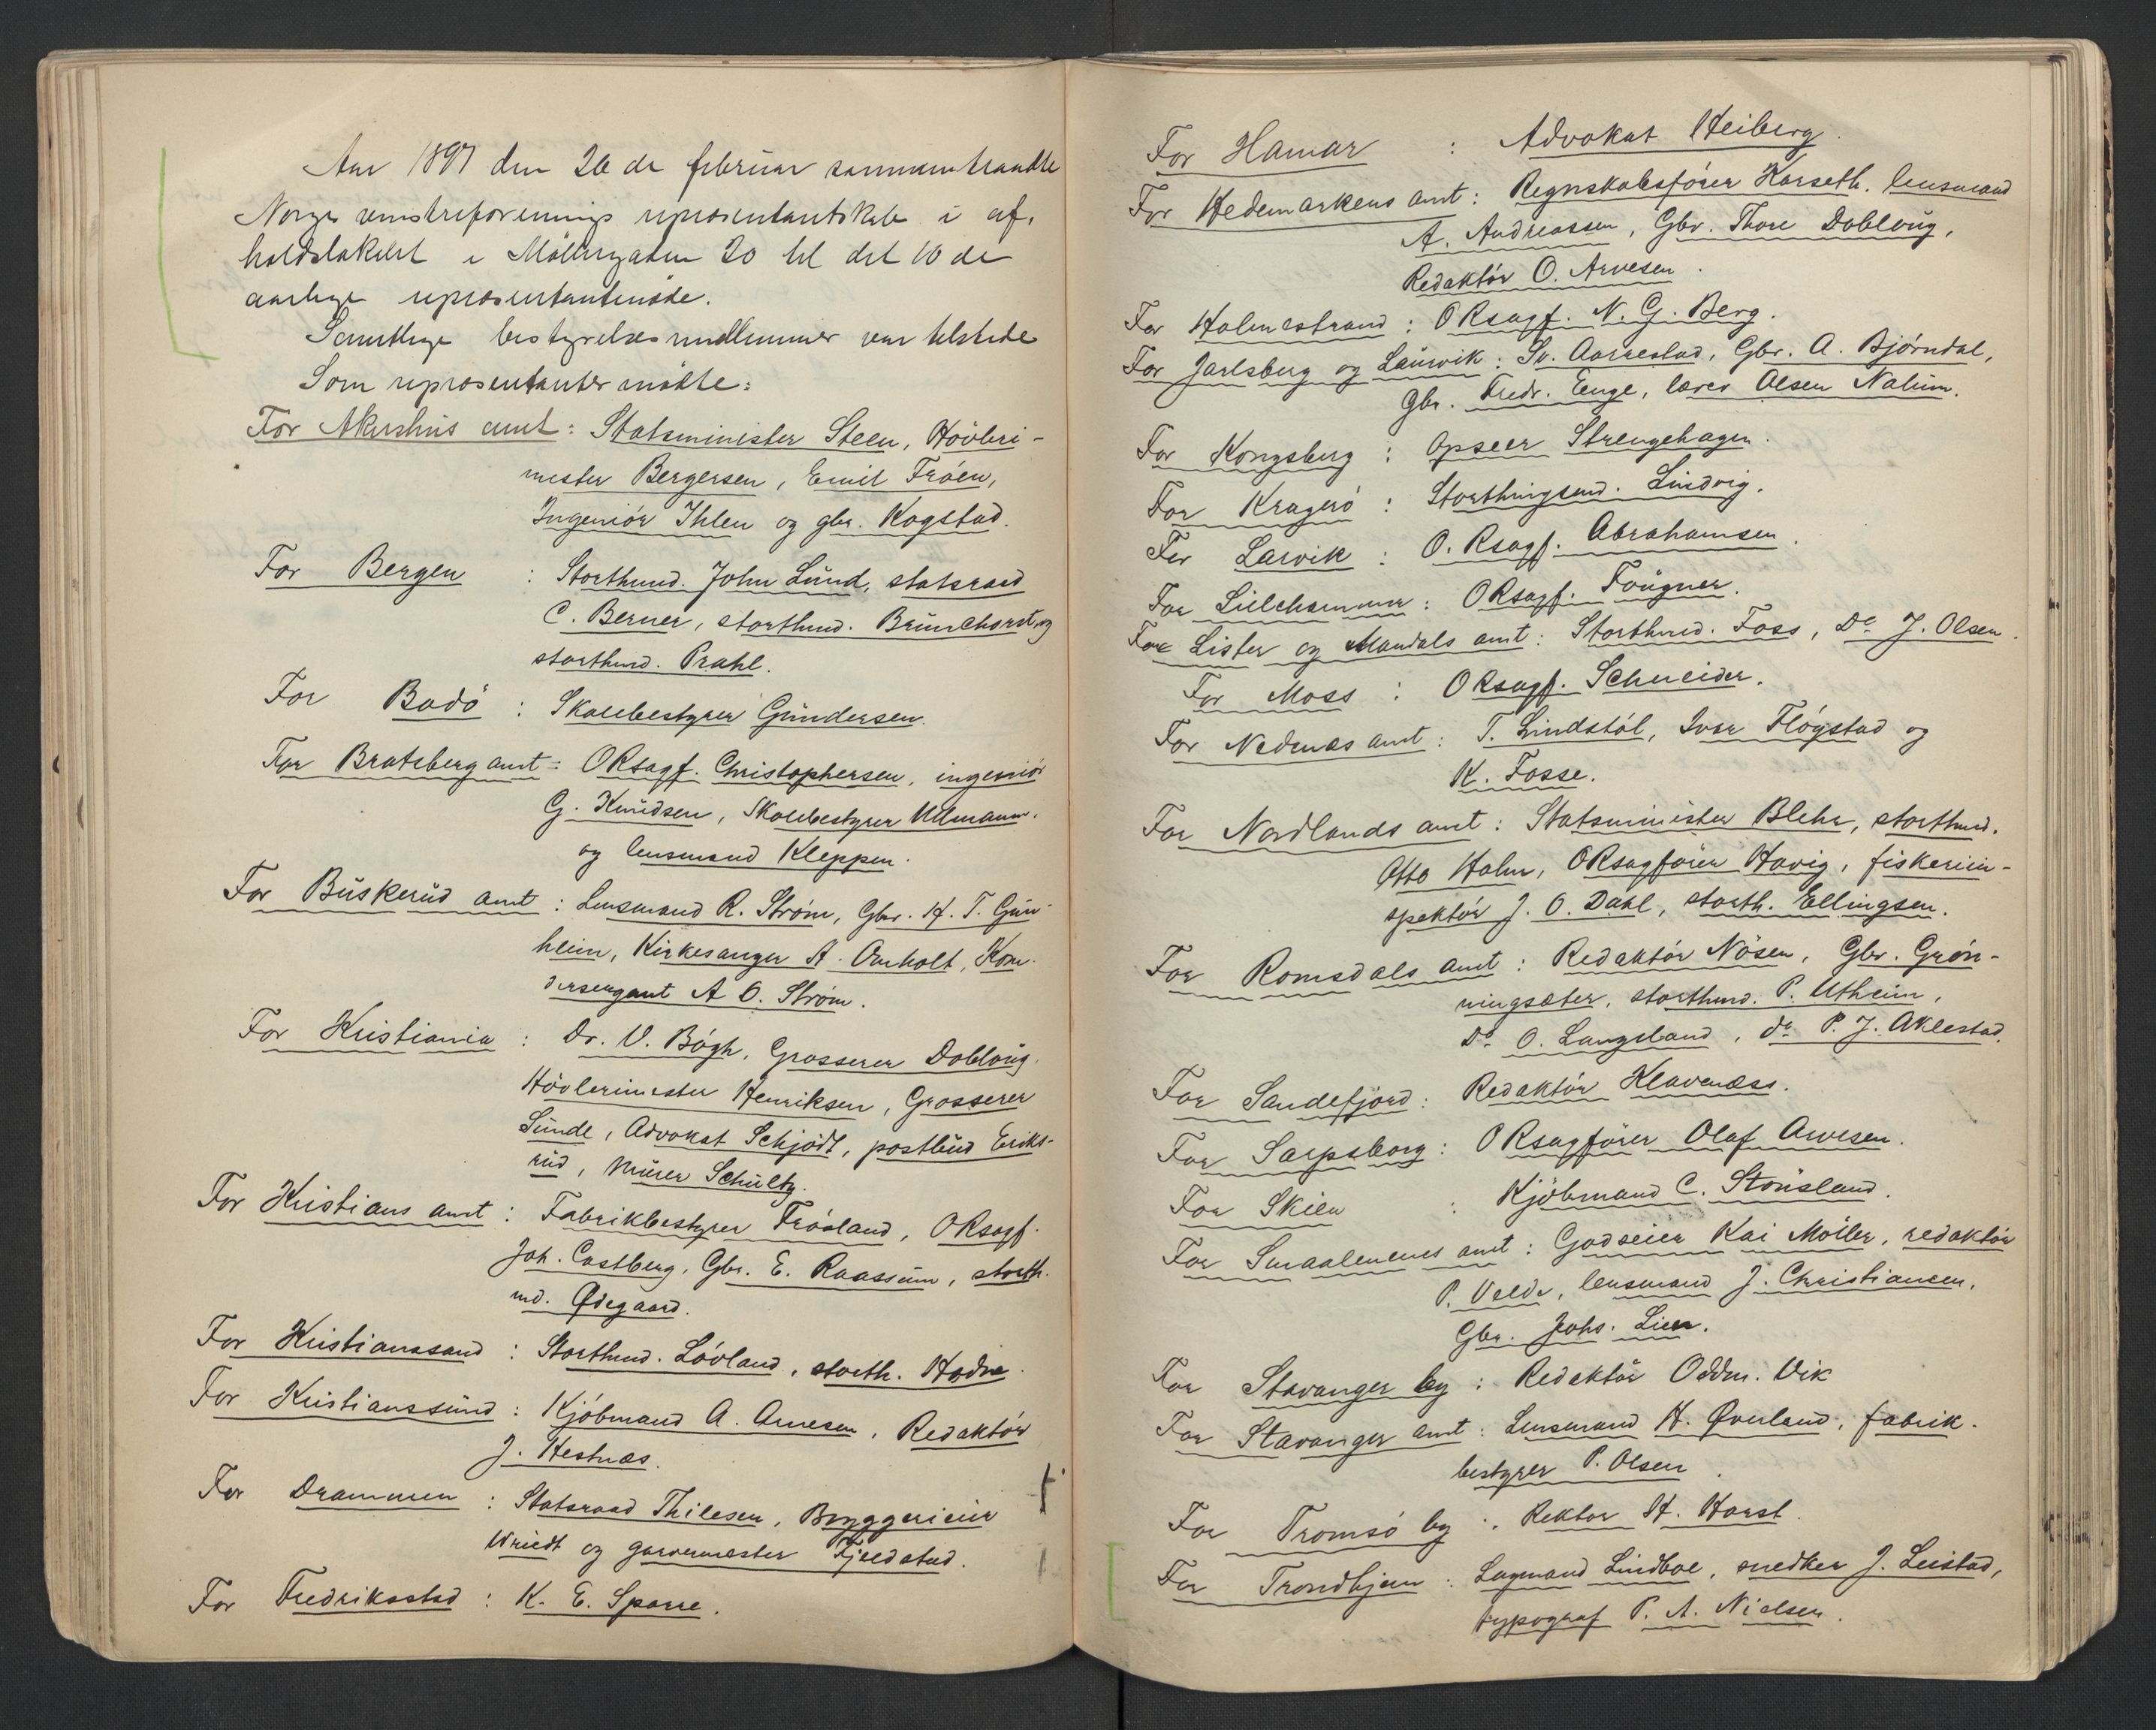 Aar 1897 den 26de februar sammentraadte
Norges venstreforenings repræsentantskab i af-
holdslokalet i Møllergaden 20 til det 10de
aarlige repræsentantmøde.
Samtlige bestyrelsesmedlemmer var tilstede
Som repræsentanter mødte:
For Akershus amt: Statsminister Steen, Høvleri-
mester Bergersen, Emil Frøen,
Ingeniør Ihlen og gbr. Kogstad.
For Bergen : Storthmd. John Lund, statsraad
C. Berner, storthmd. Brunchorst og
storthmd. Prahl.
For Bodø : Skolebestyrer Gundersen.
For Bratsberg amt: ORsagf. Christophersen, ingeniør
G. Knudsen, Skolebestyrer Ullmann.
og lensmand Kleppen.
For Buskerud amt : Lensmand R. Strøm, Gbr. H. T. Gun-
heim, Kirkesanger A. Omholt, Kom-
dersergant A O. Strøm.
For Kristiania : Dr. V. Bøgh, Grosserer Dobloug.
Høvlerimester Henriksen, Grosserer
Sunde, Advokat Schjødt, postbud Eriks-
rud, Murer Schultz.
For Kristians amt : Fabrikbestyrer Frøsland, ORsagf.
Joh. Castberg, Gbr. E. Raassum, storth.
md. Ødegaard.
For Kristianssand : Storthmd. Løvland, storth. Hodne.
For Kristianssund : Kjøbmand A. Arnesen, Redaktør
J. Hestnæs.
For Drammen : Statsraad Thilesen, Bryggerieier
Wriedt og garvermester Fjeldstad.
For Fredriksstad : K. E. Sparre.
For Hamar : Advokat Heiberg.
For Hedemarkens amt : Regnskabsfører Karseth. lensmand
A. Andreassen, Gbr. Thore Dobloug,
Redaktør O. Arvesen.
For Holmestrand : ORsagf. N. G. Berg.
For Jarlsberg og Laurvik : Sv. Aarrestad, Gbr. A. Bjørndal,
Gbr. Fredr. Enge, lærer Olsen Nalum.
For Kongsberg : Opseer Strengehagen.
For Kragerø : Storthingsmd. Lindvig.
For Larvik : O. Rsagf. Abrahamsen.
For Lillehammer : ORsagf. Fougner.
For Lister og Mandals amt : Storthmd. Foss, Do J. Olsen.
For Moss : ORsagf. Schneider.
For Nedenæs amt : T. Lindstøl, Ivar Fløgstad og
K. Fosse.
For Nordlands amt : Statsminister Blehr, storthmd.
Otto Holm, ORsagfører Havig, fiskeriin-
spektør J. O. Dahl, storth. Ellingsen.
For Romsdals amt : Redaktør Nøsen, Gbr. Grøn-
ningsæter, storthmd. P. Utheim,
Do O. Langeland, do P. J. Aklestad.
For Sandefjord : Redaktør Klavenæss.
For Sarpsborg : ORsagfører Olaf Arvesen.
For Skien : Kjøbmand C. Stousland.
For Smaalenenes amt : Godseier Kai Møller, redaktør
P. Velde, lensmand J. Christiansen,
Gbr. Johs. Lien.
For Stavanger by : Redaktør Oddm. Vik
For Stavanger amt : Lensmand H. Øverland, fabrik-
bestyrer P. Olsen.
For Tromsø by : Rektor H. Horst.
For Trondhjem : Lagmand Lindboe, snedker J. Leistad,
typograf P. A. Nielsen.